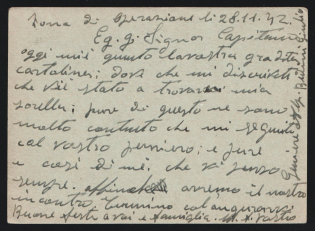 Zona di Operazione li 28.11.42.
Eg. gi Signor Capitano
oggi mi è giunto la vostra gradita
cartolina; dove che mi discuvisti
che vi è stato a trovarvi mia
sorella; pure di questo ne sono
molto contento che mi seguiti
col vostro pensiero; e pure
e così di me, che vi penso
sempre; affinché avremo il nostro
incontro, Termino col augurarvi
Buone feste a voi e famiglia.